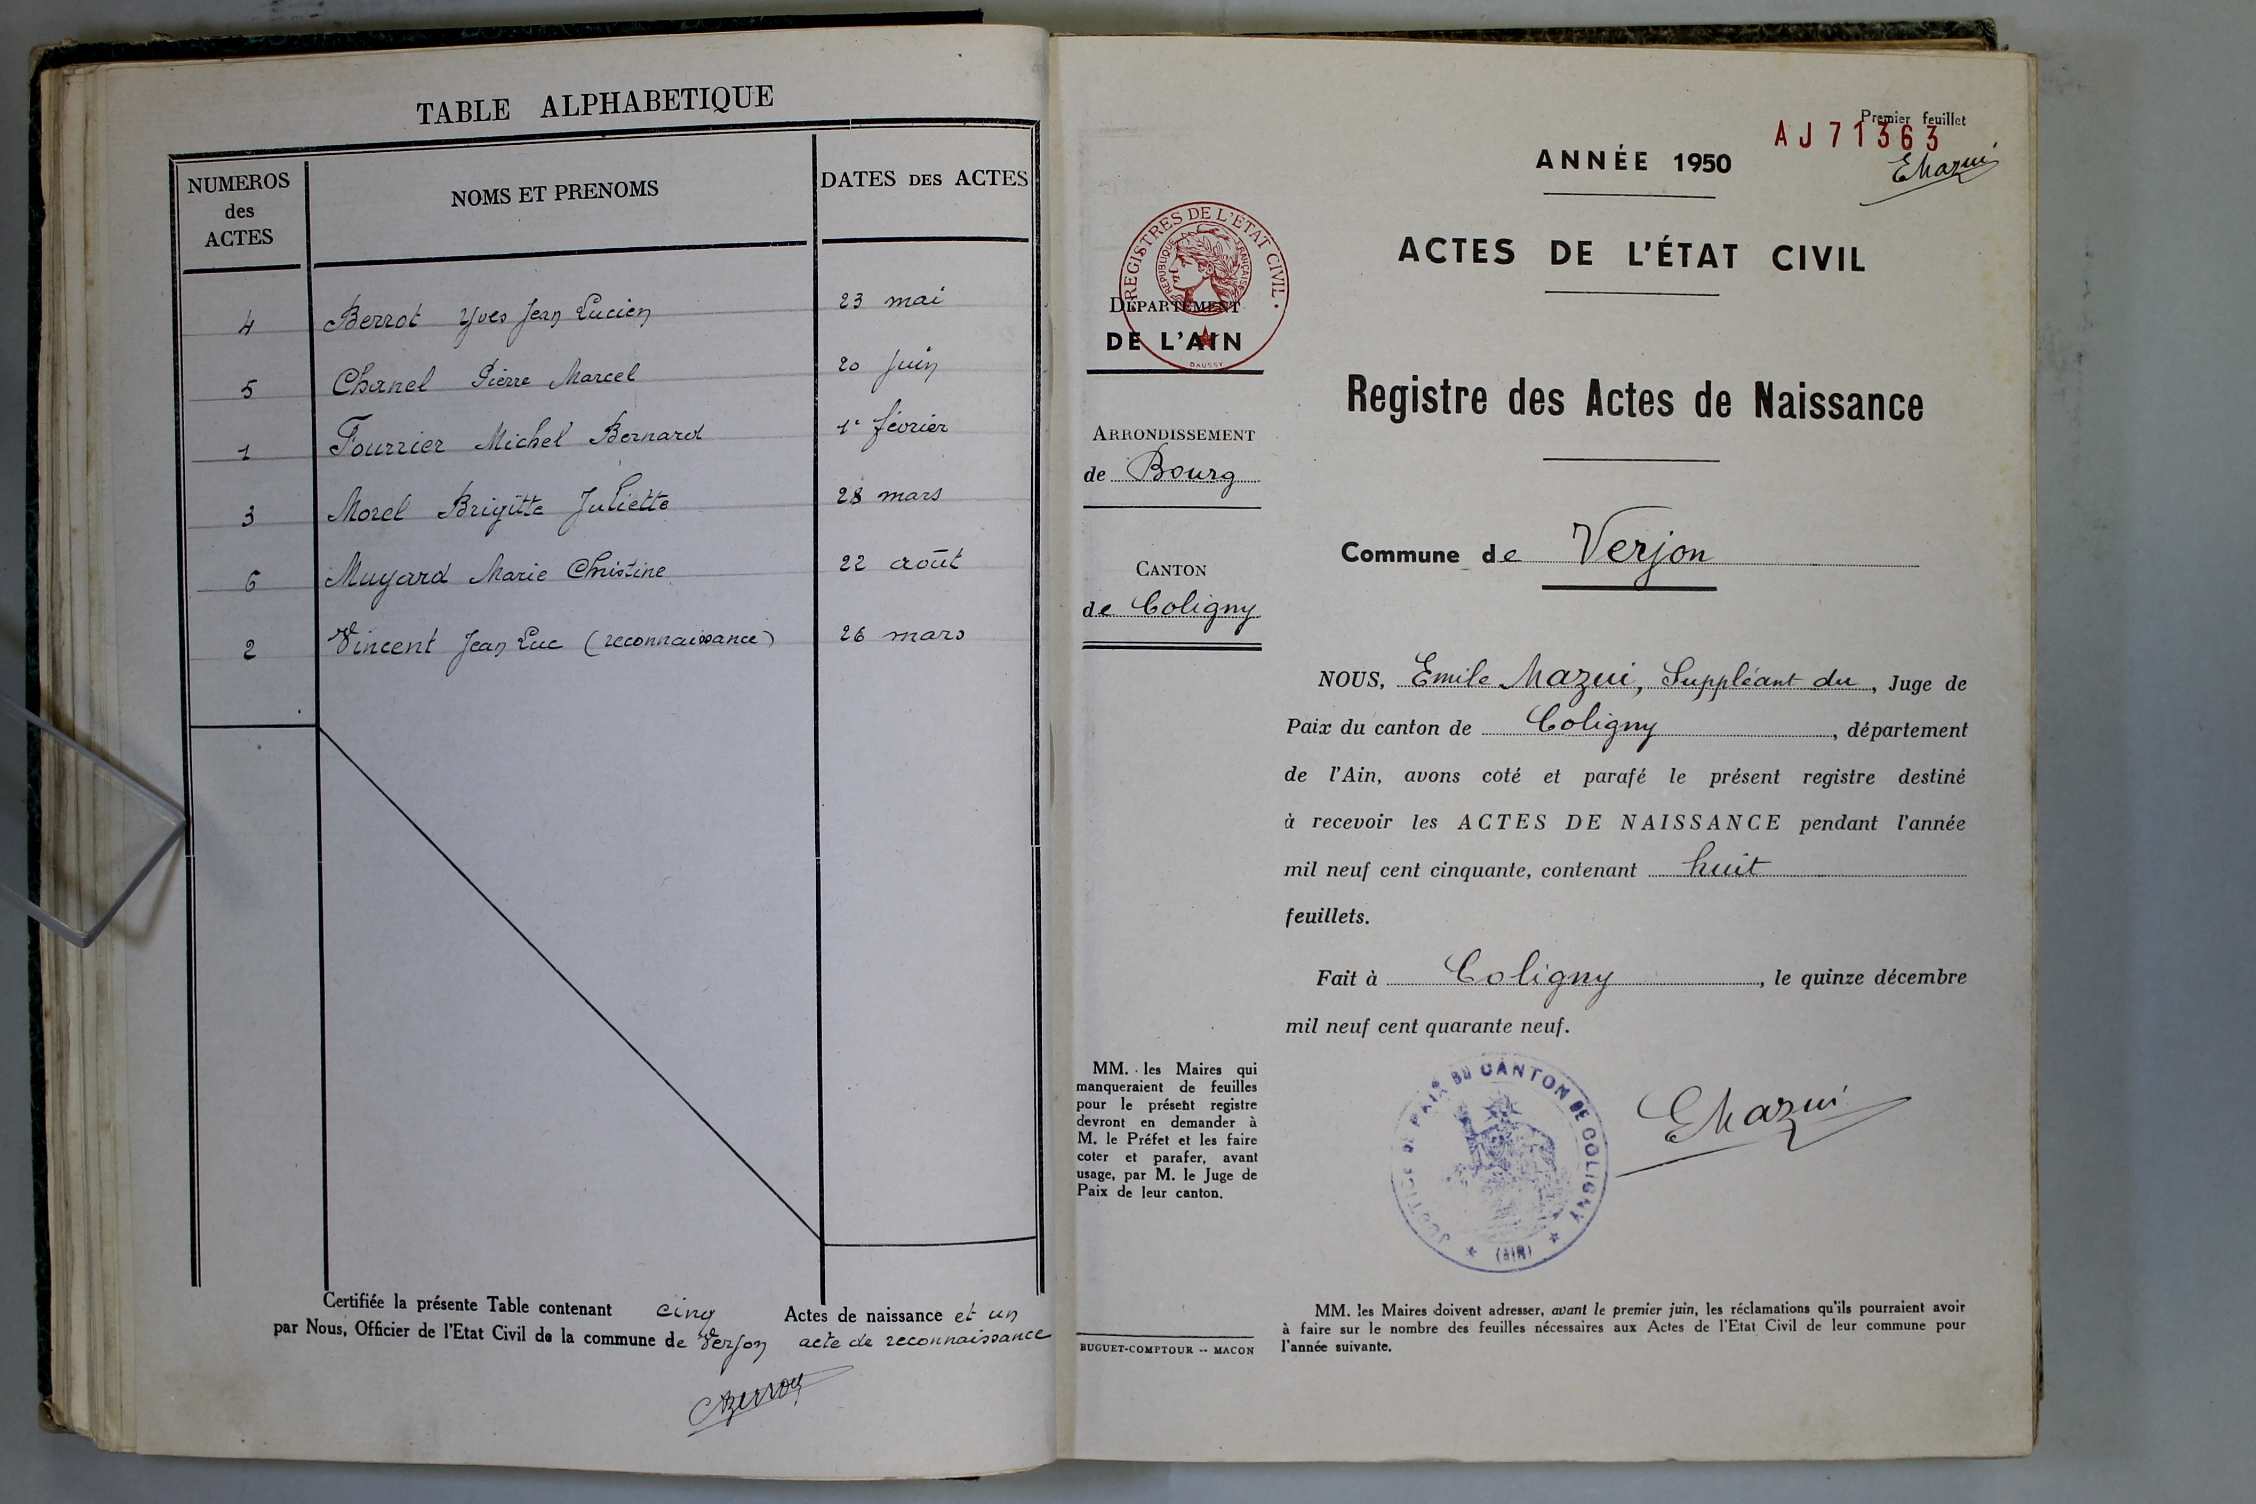 TABLE ALPHABETIQUE
NUMEROS
des
ACTES
NOMS ET PRENOMS
DATES DES ACTES
4 Berrot Yves Jean Lucien 23 mai
5 Chanel Pierre Marcel 20 Juin
1 Fourrier Michel Bernard 1er février
3 Morel Brigitte Juliette 28 mars
6 Muyard Marie Christine 22 août
2 Vincent Jean Luc (reconnaissance) 26 mars
Certifiée la présente Table contenant cinq Actes de naissance et un
par Nous, Officier de l'Etat Civil de la commune de Verjon acte de reconnaissance
Premier feuillet
AJ71363
EMazui
ANNÉE 1950
ACTES DE L'ÉTAT CIVIL
REGISTRES DE L'ETAT CIVIL
REPUBLIQUE FRANÇAISE
DAUSSY
DÉPARTEMENT
DE L'AIN
Registre des Actes de Naissance
ARRONDISSEMENT
de Bourg
Commune de Verjon
CANTON
de Coligny
NOUS, Emile Mazui, Suppléant du, Juge de
Paix du canton de Coligny, département
de l'Ain, avons coté et parafé le présent registre destiné
à recevoir les ACTES DE NAISSANCE pendant l'année
mil neuf cent cinquante, contenant huit
feuillets.
Fait à Coligny, le quinze décembre
mil neuf cent quarante neuf.
MM. les Maires qui
manqueraient de feuilles
pour le présent registre
devront en demander à
M. le Préfet et les faire
coter et parafer, avant
usage, par M. le Juge de
Paix de leur canton.
JUSTICE DE PAIX DU CANTON DE COLIGNY
(AIN)
EMazui
MM. les Maires doivent adresser, avant le premier juin, les réclamations qu'ils pourraient avoir
à faire sur le nombre des feuilles nécessaires aux Actes de l'Etat Civil de leur commune pour
l'année suivante.
BUGUET-COMPTOUR -- MACON